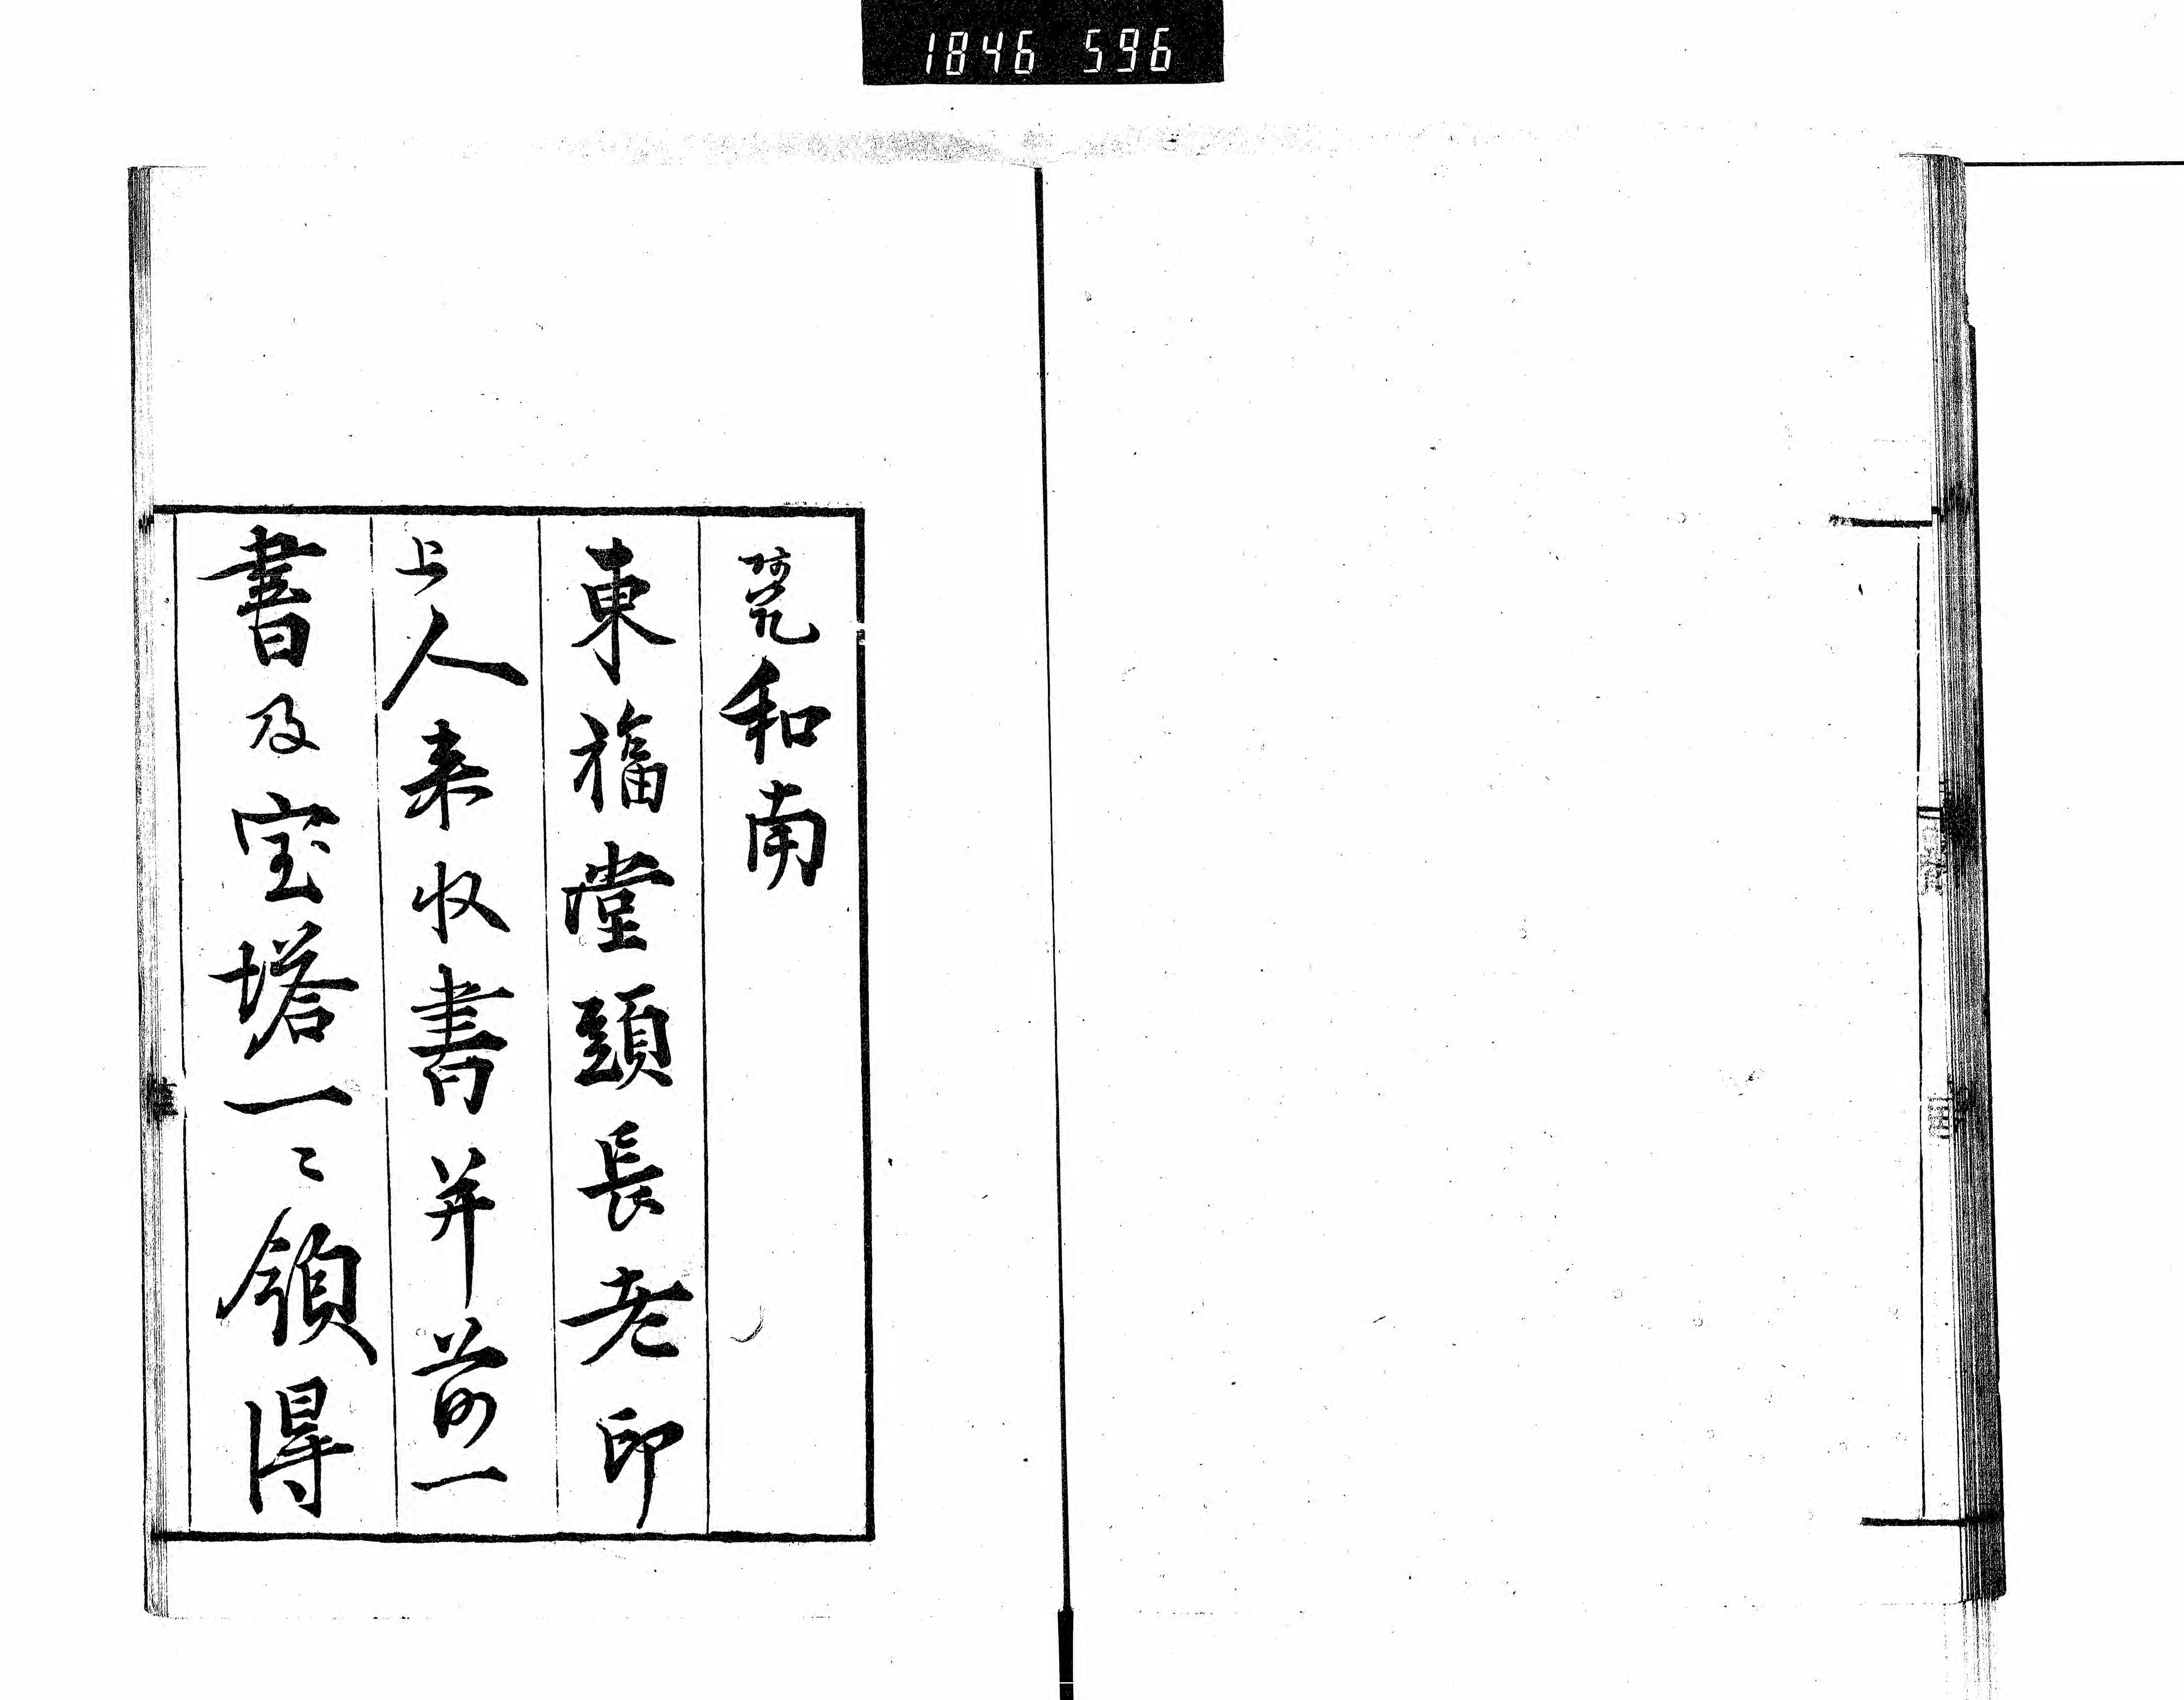 1846 596
和南
東福堂頭長老印
上人来收書并前一
書及宝塔一〻領得